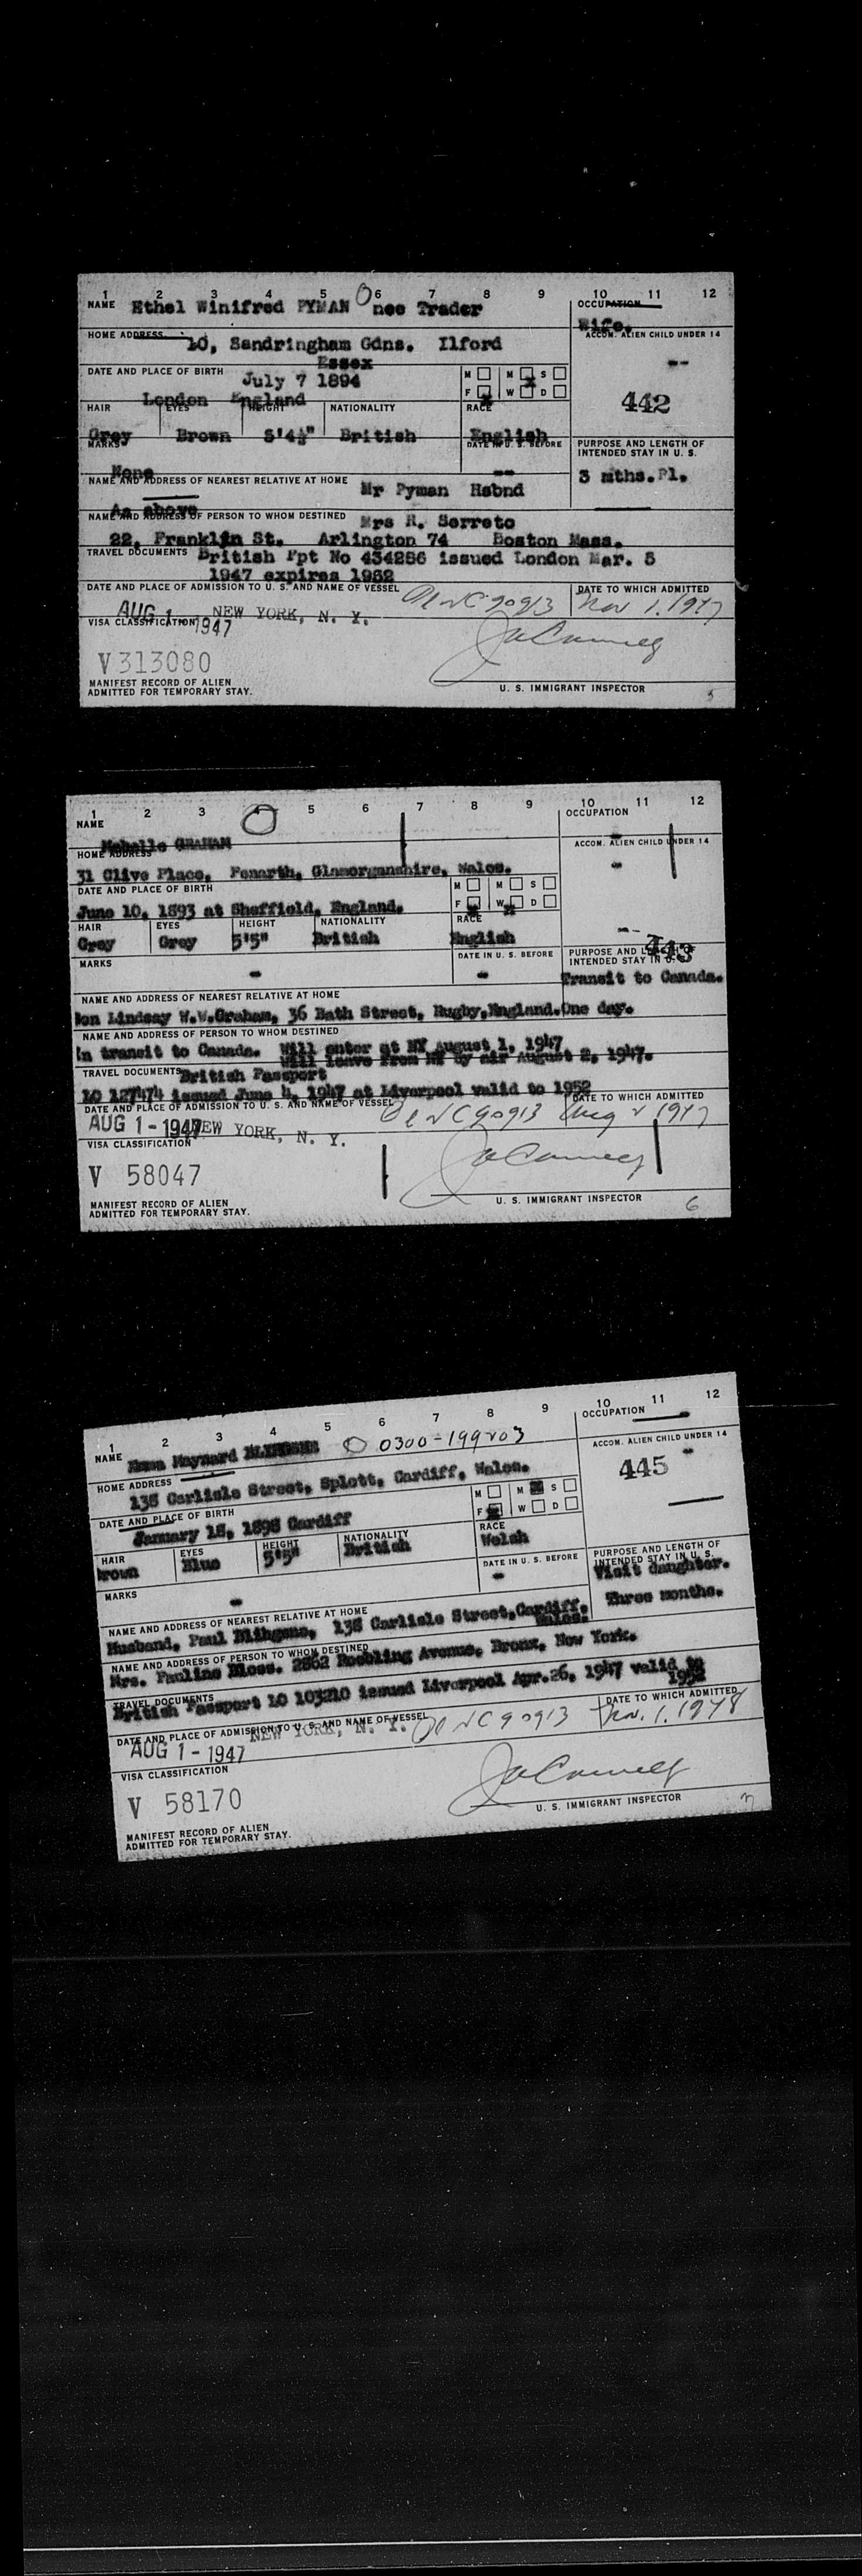 1 2 3 4 5 6 7 8 9 10 11 12
NAME Ethel Winifred PYMAN nee Trader OCCUPATION
Wife.
HOME ADDRESS 10, Sandringham Gdns. Ilford ACCOM. ALIEN CHILD UNDER 14
Essex --
DATE AND PLACE OF BIRTH July 7 1894 M M S
London England F W D 442
HAIR EYES HEIGHT NATIONALITY RACE
Grey Brown 5'4½" British English
MARKS DATE IN U. S. BEFORE PURPOSE AND LENGTH OF
INTENDED STAY IN U. S.
None -- 3 mths. Pl.
NAME AND ADDRESS OF NEAREST RELATIVE AT HOME Mr Pyman Hsbnd
As above
NAME AND ADDRESS OF PERSON TO WHOM DESTINED Mrs R. Serreto
22, Franklin St. Arlington 74 Boston Mass.
TRAVEL DOCUMENTS British Ppt No 434286 issued London Mar. 5
1947 expires 1952
DATE AND PLACE OF ADMISSION TO U. S. AND NAME OF VESSEL NC90913 DATE TO WHICH ADMITTED
AUG 1 - 1947 NEW YORK, N. Y. Nov 1, 1947
VISA CLASSIFICATION
V313080
MANIFEST RECORD OF ALIEN
ADMITTED FOR TEMPORARY STAY. U. S. IMMIGRANT INSPECTOR 5
1 2 3 4 5 6 7 8 9 10 11 12
NAME OCCUPATION
Mabelle GRAHAM -
HOME ADDRESS ACCOM. ALIEN CHILD UNDER 14
31 Clive Place, Penarth, Glamorganshire, Wales. -
DATE AND PLACE OF BIRTH M M S
June 10, 1893 at Sheffield, England. F W D
HAIR EYES HEIGHT NATIONALITY RACE
Grey Grey 5'5" British English -- 443
MARKS DATE IN U. S. BEFORE PURPOSE AND LENGTH OF
INTENDED STAY IN U. S.
- - Transit to Canada.
NAME AND ADDRESS OF NEAREST RELATIVE AT HOME
Son Lindsay W.W.Graham, 36 Bath Street, Rugby,England. One day.
NAME AND ADDRESS OF PERSON TO WHOM DESTINED
In transit to Canada. Will enter at NY August 1, 1947
Will leave from NY by air August 2, 1947.
TRAVEL DOCUMENTS British Passport
LO 127474 issued June 4, 1947 at Liverpool valid to 1952
DATE AND PLACE OF ADMISSION TO U. S. AND NAME OF VESSEL NC90913 DATE TO WHICH ADMITTED
AUG 1 - 1947 NEW YORK, N. Y. Aug 2 1947
VISA CLASSIFICATION
V 58047
MANIFEST RECORD OF ALIEN
ADMITTED FOR TEMPORARY STAY. U. S. IMMIGRANT INSPECTOR 6
1 2 3 4 5 6 7 8 9 10 11 12
NAME Maynard 0300-199203 OCCUPATION
HOME ADDRESS ACCOM. ALIEN CHILD UNDER 14
138 Carlisle Street, Splott, Cardiff, Wales. -
445
DATE AND PLACE OF BIRTH M M S
January 18, 1898 Cardiff F W D
HAIR EYES HEIGHT NATIONALITY RACE
brown Blue 5'5" British Welsh
MARKS DATE IN U. S. BEFORE PURPOSE AND LENGTH OF
INTENDED STAY IN U. S.
- - Visit daughter.
Three months.
NAME AND ADDRESS OF NEAREST RELATIVE AT HOME
Husband, Paul Blihgsne, 138 Carlisle Street,Cardiff,
Wales.
NAME AND ADDRESS OF PERSON TO WHOM DESTINED
Mrs. Pauline Moss. 2862 Roebling Avenue, Bronx, New York.
TRAVEL DOCUMENTS
British Passport LO 103210 issued Liverpool Apr.26, 1947 valid to
1952
DATE AND PLACE OF ADMISSION TO U. S. AND NAME OF VESSEL NC90913 DATE TO WHICH ADMITTED
AUG 1 - 1947 NEW YORK, N. Y. Nov. 1, 1948
VISA CLASSIFICATION
V 58170
MANIFEST RECORD OF ALIEN
ADMITTED FOR TEMPORARY STAY. U. S. IMMIGRANT INSPECTOR 7